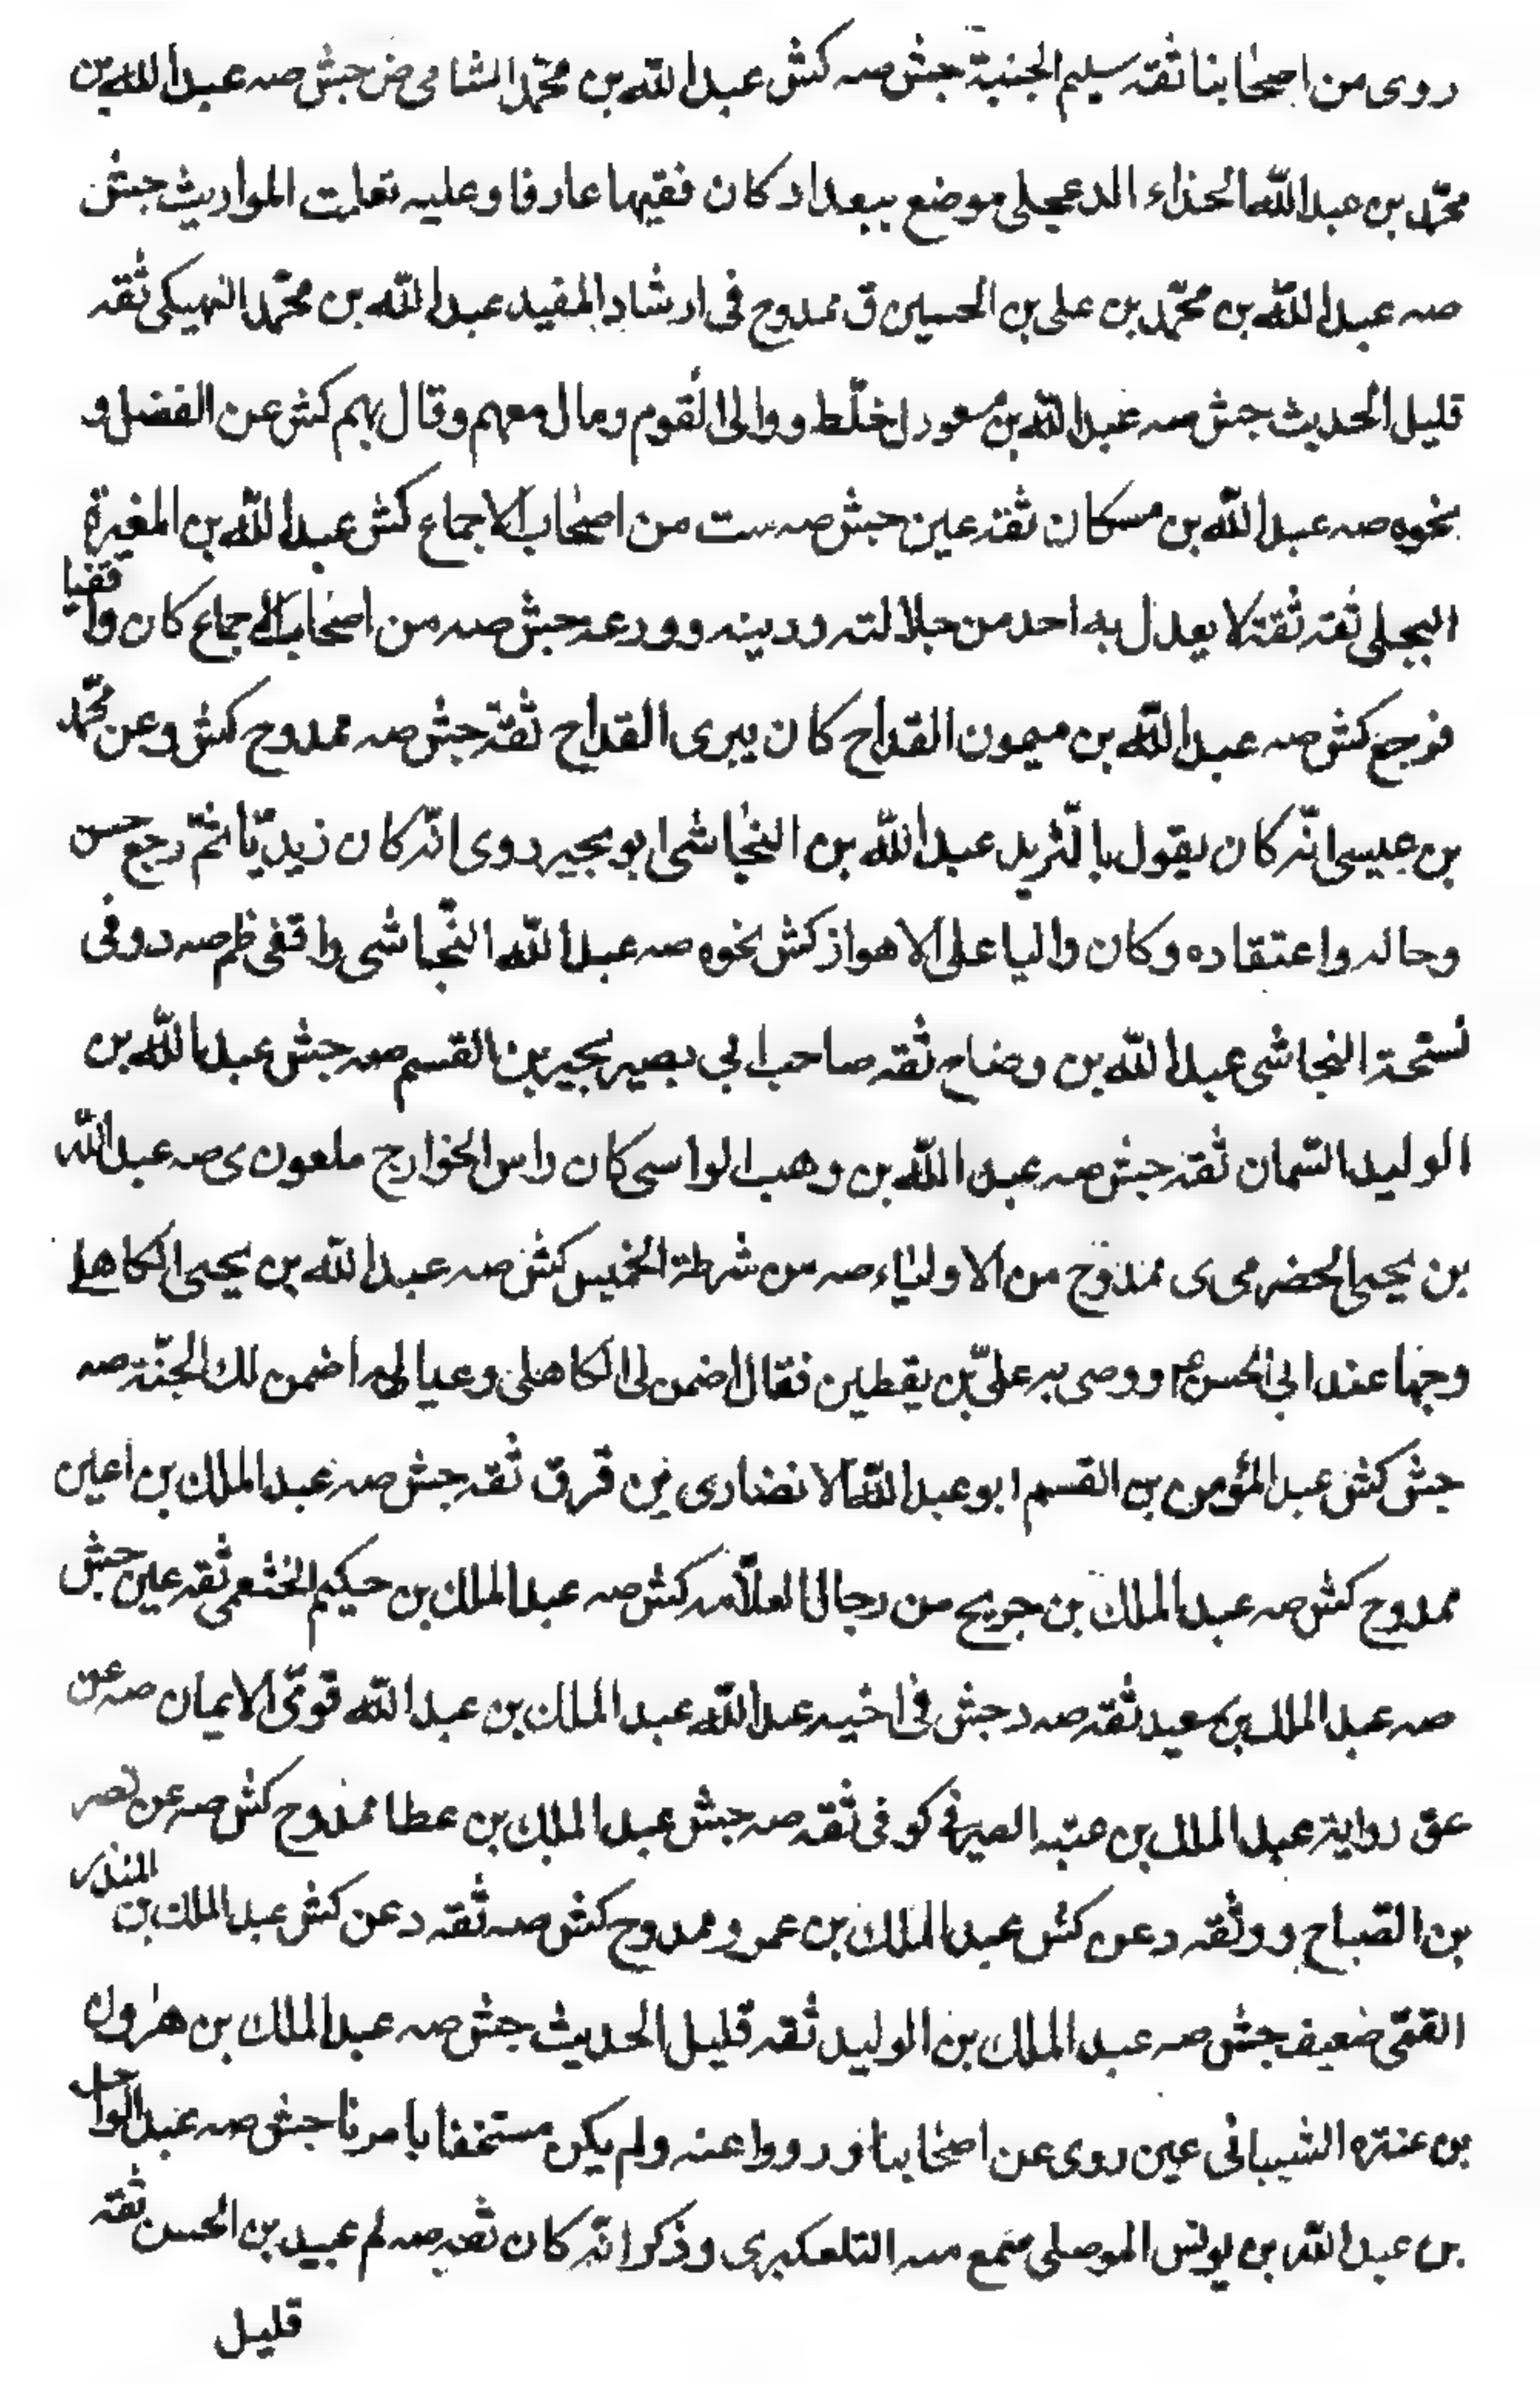 روى من اصحابنا ثقه سليم الجنبة جش صه كش عبد الله بن محمّد الشامى ض جش صه عبد الله بن
محمّد بن عبد الله الحذاء الدعجلى موضع ببعداد كان فقيها عارفا وعليه تعلمت المواريث جش
صه عبد الله بن محمّد بن على بن الحسين ق ممدوح فى ارشاد المفيد عبد الله بن محمّد النهيكى ثقه
قليل الحديث جش صه عبد الله بن مسعود ل خلّط ووالى القوم ومال معهم وقال بهم كش عن الفضل و
نحوه صه عبد الله بن مسكان ثقه عين جش صه ست من اصحاب الاجماع كش عبد الله بن المغيرة
البجلى ثقه ثقة لا يعدل به احد من جلالته ودينه وورعه جش صه من اصحاب الاجماع كان واقفيا
فرجع كش صه عبد الله بن ميمون القداح كان يبرى القداح ثقة جش صه ممدوح كش وعن محمّد
بن عيسى انّه كان يقول بالتّزيد عبد الله بن النجاشى ابو بجير روى انّه كان زيديّا ثمّ رجع حسن
وحاله واعتقاده وكان واليا على الاهواز كش نحوه صه عبد الله النّجاشى واقفى ظم صه د وفى
نستحة النجاشى عبد الله بن وضاح ثقه صاحب ابى بصير يحيى بن القسم صه جش عبد الله بن
الوليد السّمان ثقة جش صه عبد الله بن وهب الواسى كان راس الخوارج ملعون ى صه عبد الله
بن يحيى الحضرمى ى ممدوح من الاولياء صه من شرطة الخميس كش صه عبد الله بن يحيى الكاهلى
وجها عند ابى الحسن ع ووصى به علىّ بن يقطين فقال اضمن لى الكاهلى وعياله اضمن لك الجنّة صه
جش كش عبد المؤمن بن القسم ابو عبد الله الانصارى ين قر ق ثقه جش صه عبد الملك بن اعين
ممدوح كش صه عبد الملك بن جريح من رجال العلّامه كش صه عبد الملك بن حكيم الخثعمى ثقه عين جش
صه عبد الملك بن سعيد ثقه صه د جش فى اخيه عبد الله عبد الملك بن عبد الله قوىّ الايمان صه عن
عق رواية عبد الملك بن عتبه الصيرفى كوفى ثقه صه جش عبد الملك بن عطا ممدوح كش صه عن نصر
بن الصّباح ووثقه د عن كش عبد الملك بن عمرو ممدوح كش صه ثقه د عن كش عبد الملك بن المنذر
القمّى ضعيف جش صه عبد الملك بن الوليد ثقه قليل الحديث جش صه عبد الملك بن هرون
بن عنتره الشيبانى عين روى عن اصحابنا ورووا عنه ولم يكن مستخفا بامرنا جش صه عبد الواحد
بن عبد الله بن يونس الموصلى سمع منه التلعكبرى وذكر انّه كان ثقه صه لم عبيد بن الحسن ثقه
قليل